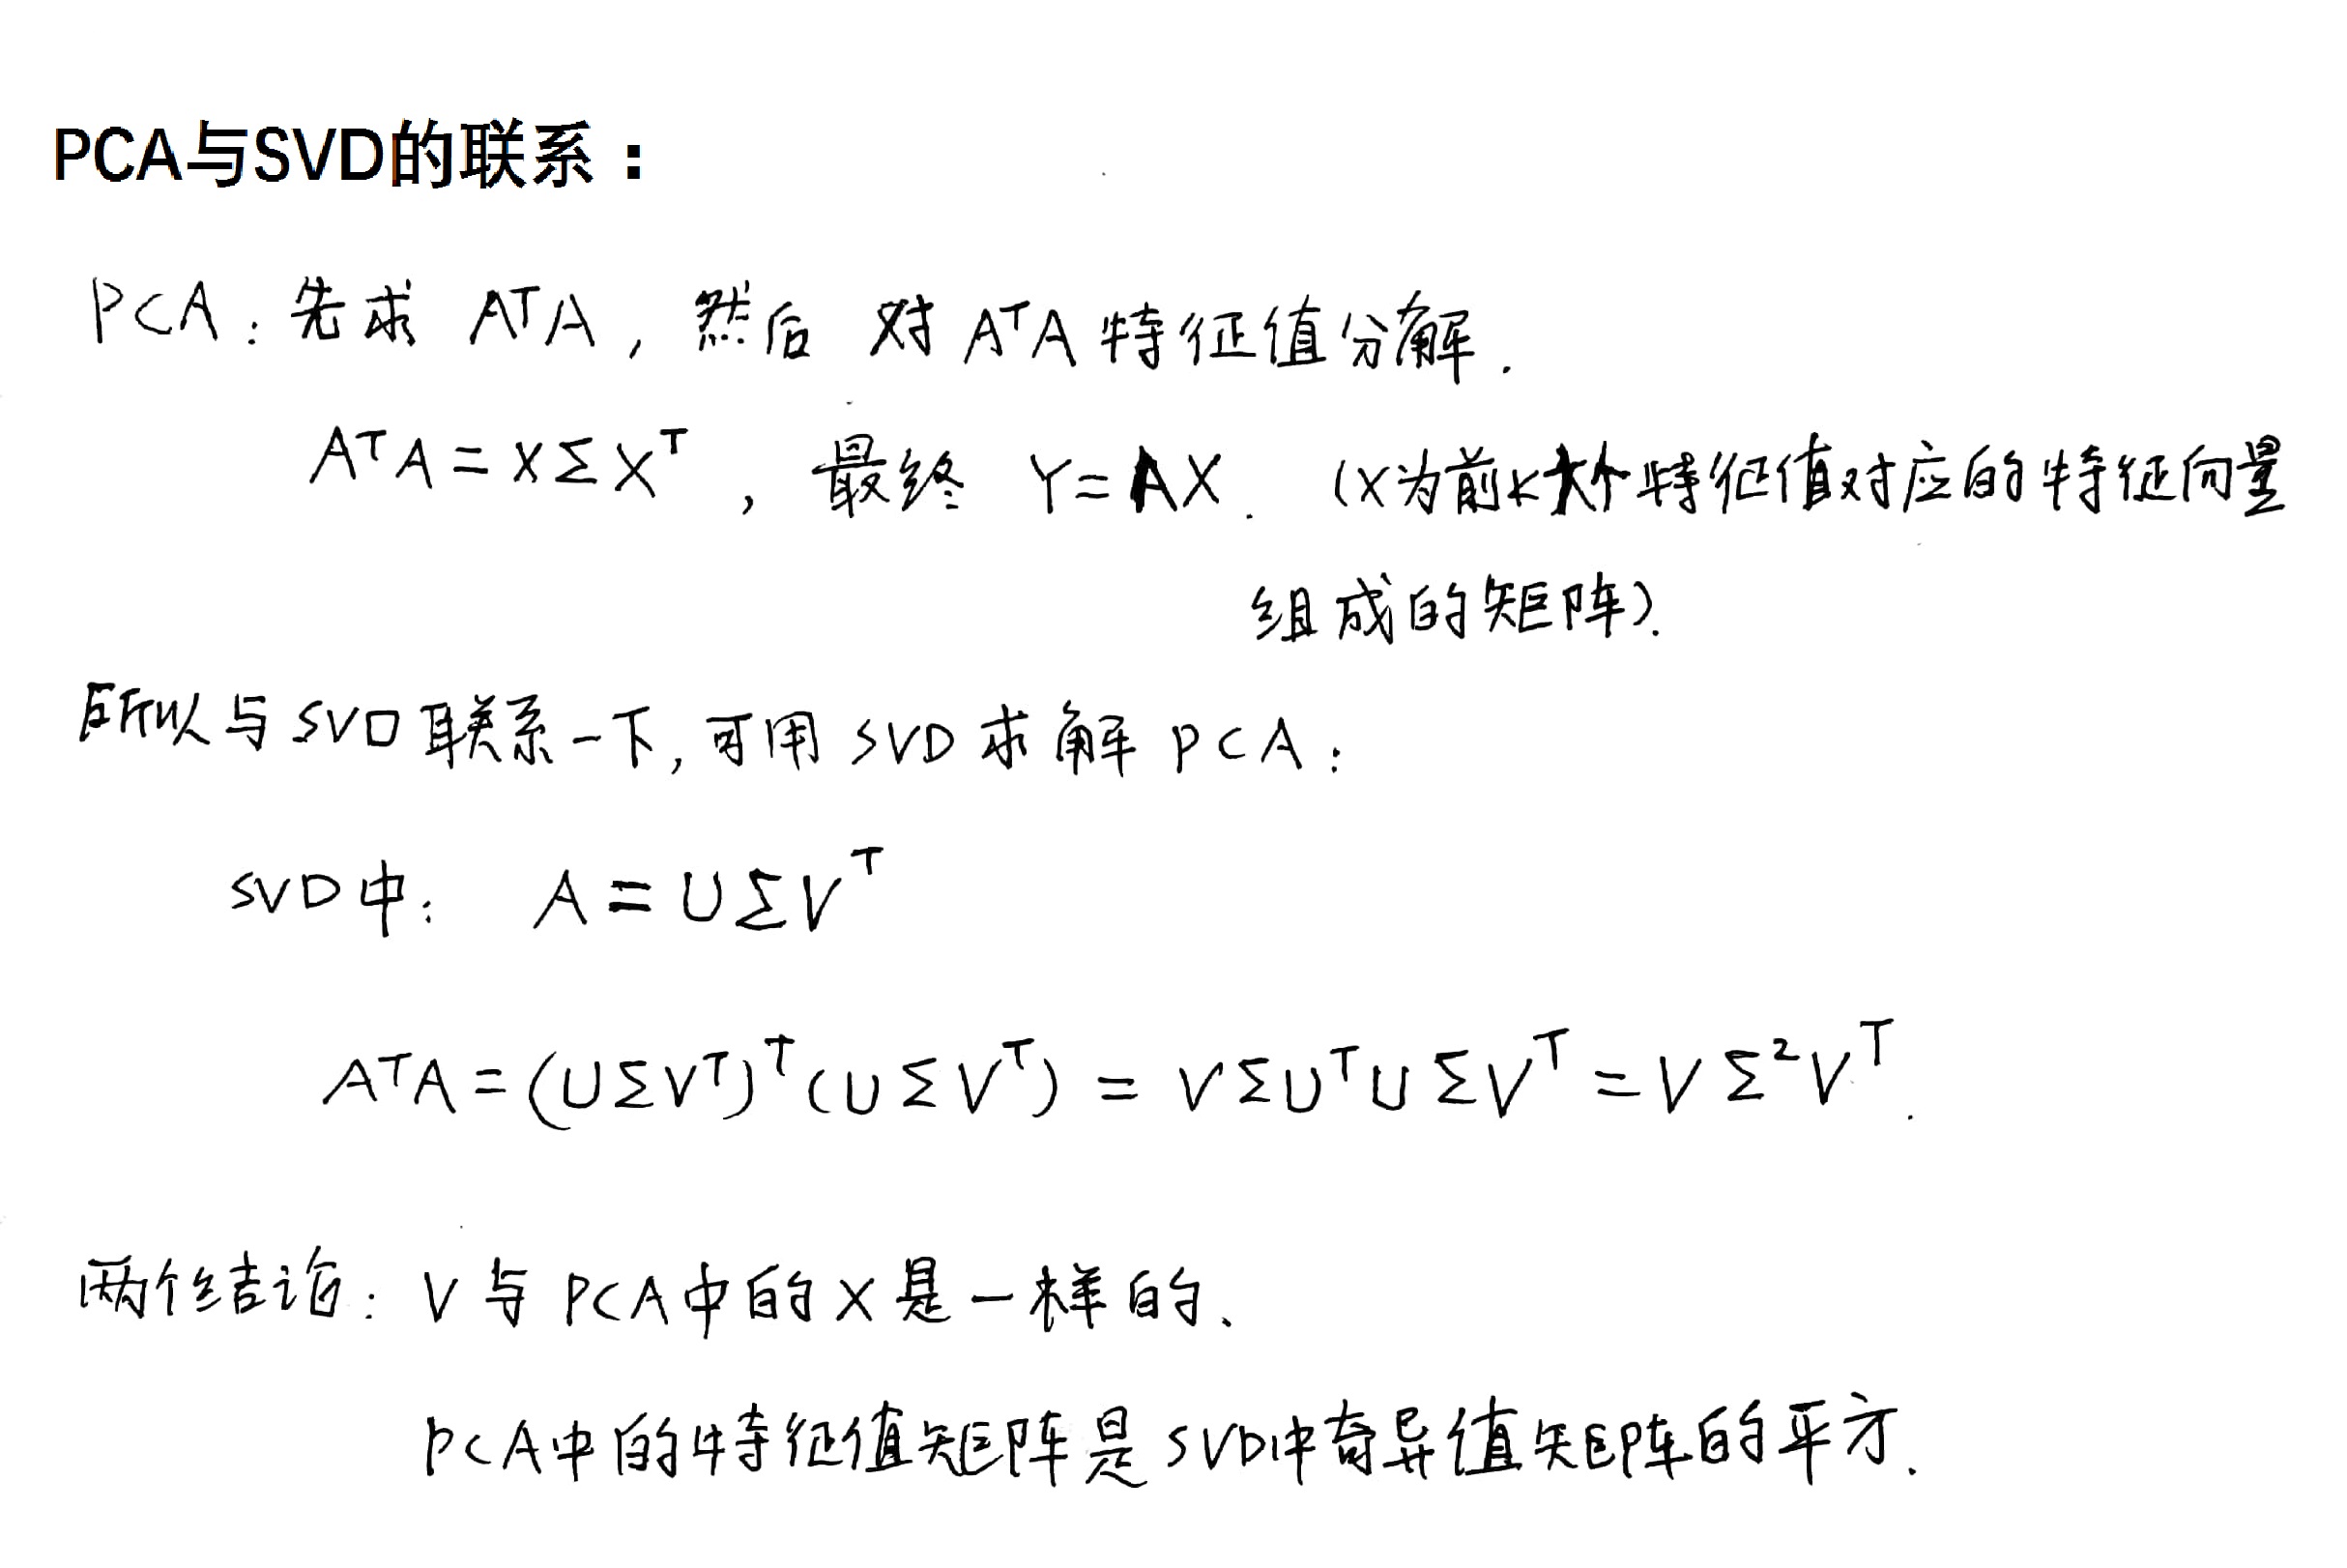 PCA与SVD的联系：
PCA：先求 AᵀA，然后 对 AᵀA 特征值分解.
AᵀA = XΣXᵀ，最终 Y=AX. (X为前k大个特征值对应的特征向量
组成的矩阵).
所以与SVD联系一下，可用SVD求解PCA：
SVD中： A = UΣVᵀ
AᵀA = (UΣVᵀ)ᵀ(UΣVᵀ) = VΣUᵀUΣVᵀ = VΣ²Vᵀ.
两个结论：V与PCA中的X是一样的、
PCA中的特征值矩阵是SVD中奇异值矩阵的平方.